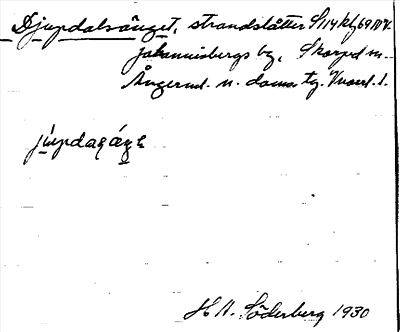 Djupdalsänget, strandslåtter S114kfg69NV.
Johannisbergs by, Skorped sn.
Ångerml. n. doms tg. Vnorrl. l.
júpdagäɳe
H N. Söderberg 1930